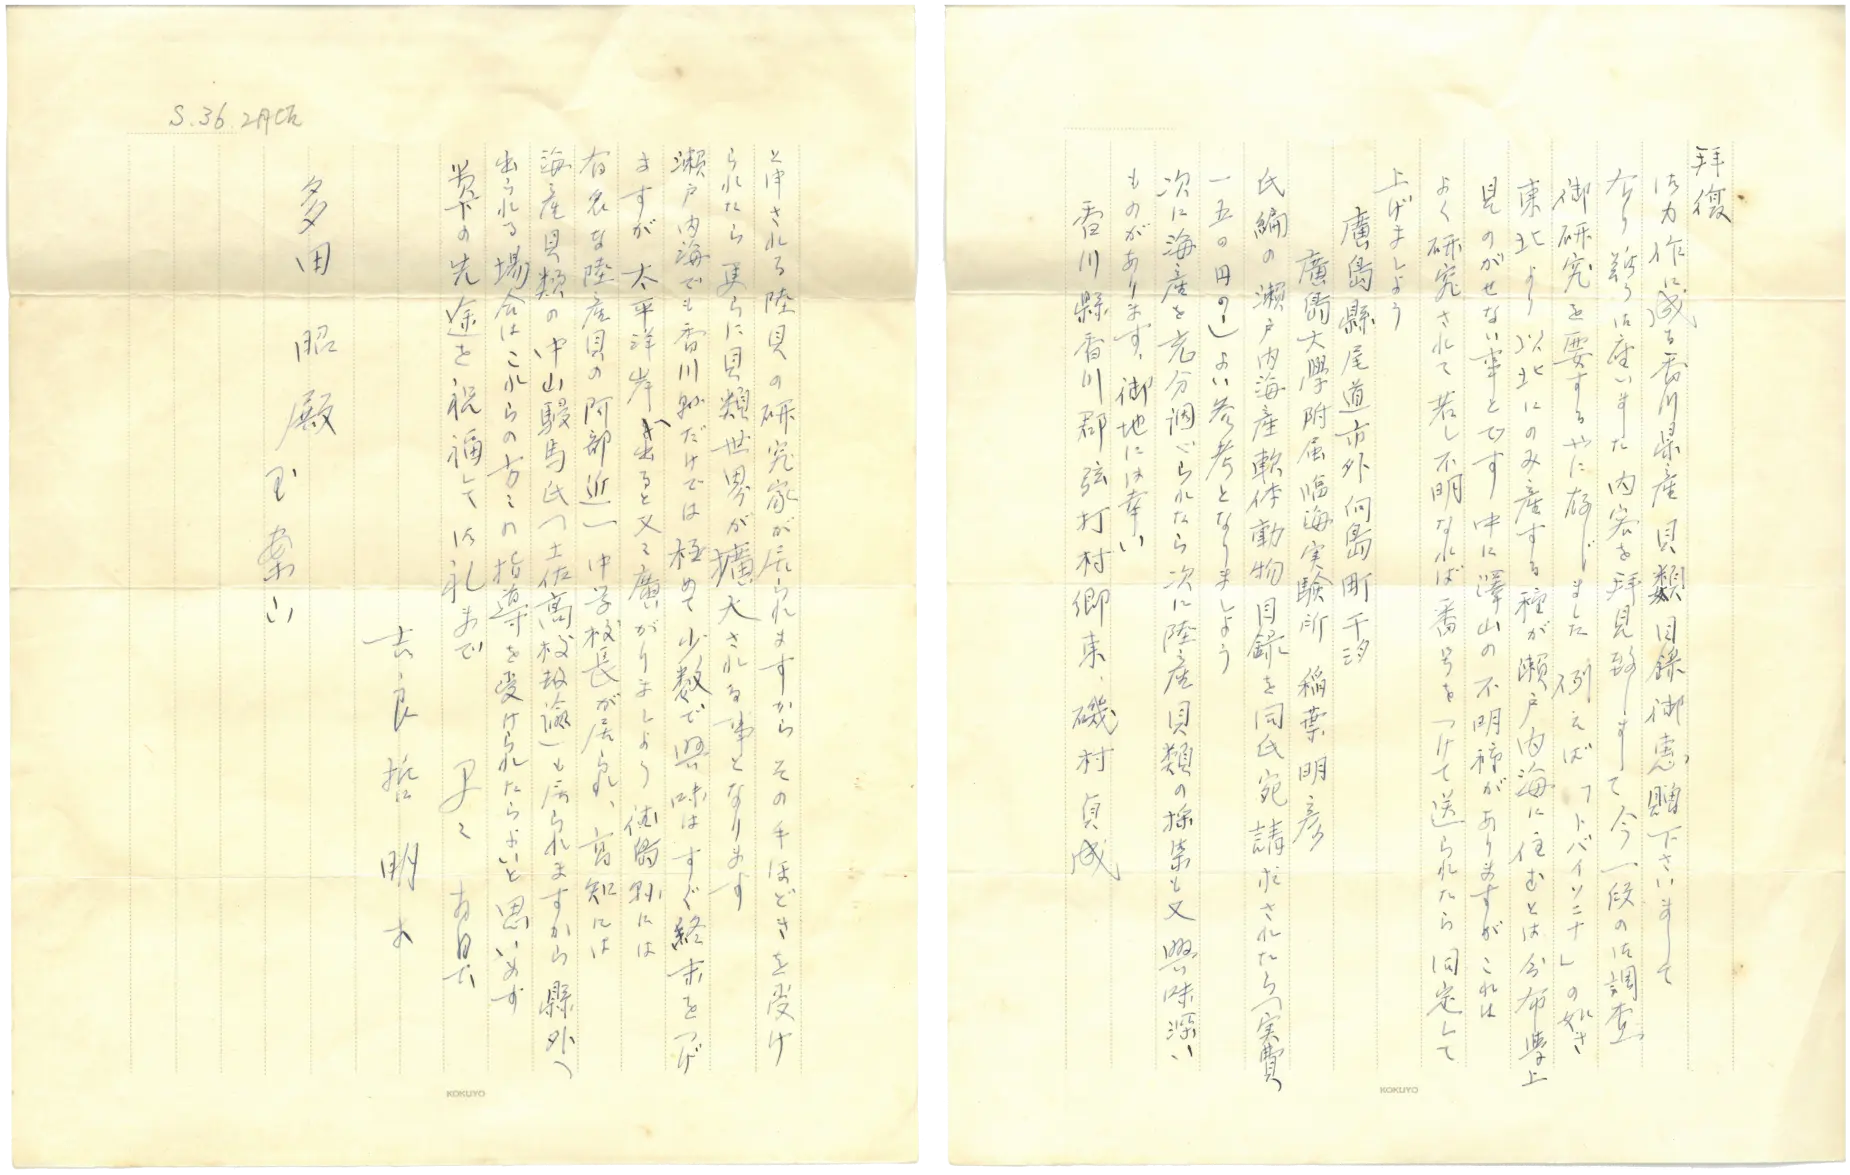 拝復
御力作に成る香川県産貝類目録御恵贈下さいまして
有り難う御座いました 内容を拝見致しまして今一段の御調査
御研究を要するやに存じました 例えば「フトバイソニナ」の如き
東北より以北にのみ産する種が瀬戸内海に住むとは分布学上
見のがせない事とです 中に澤山の不明種がありますがこれは
よく研究されて若し不明なれば番号をつけて送られたら同定して
上げましよう
廣島縣尾道市外向島町干汐
廣島大學附属臨海実験所 稲葉明彦
氏編の瀬戸内海産軟体動物目録を同氏宛請求されたら(実費
一五〇円の)よい参考となりましよう
次に海産を充分調べられたら次に陸産貝類の採集も又興味深い
ものがあります、御地には幸い
香川縣香川郡弦打村郷東、磯村貞成
と申される陸貝の研究家が居られますから その手ほどきを受け
られたら更らに貝類世界が擴大される事となります
瀬戸内海でも香川縣だけでは極めて少数で興味はすぐ終末をつげ
ますが 太平洋岸へ出ると又々廣がりましよう 徳島縣には
有名な陸産貝の阿部近一中学校長が居られ、高知には
海産貝類の中山駿馬氏(土佐高校教諭)も居られますから縣外へ
出られる場合はこれらの方々の指導を受けられたらよいと思います
貴下の先途を祝福して御礼まで 早々
吉良哲明
多田昭殿
玉案下
S.36.2月頃
KOKUYO
KOKUYO